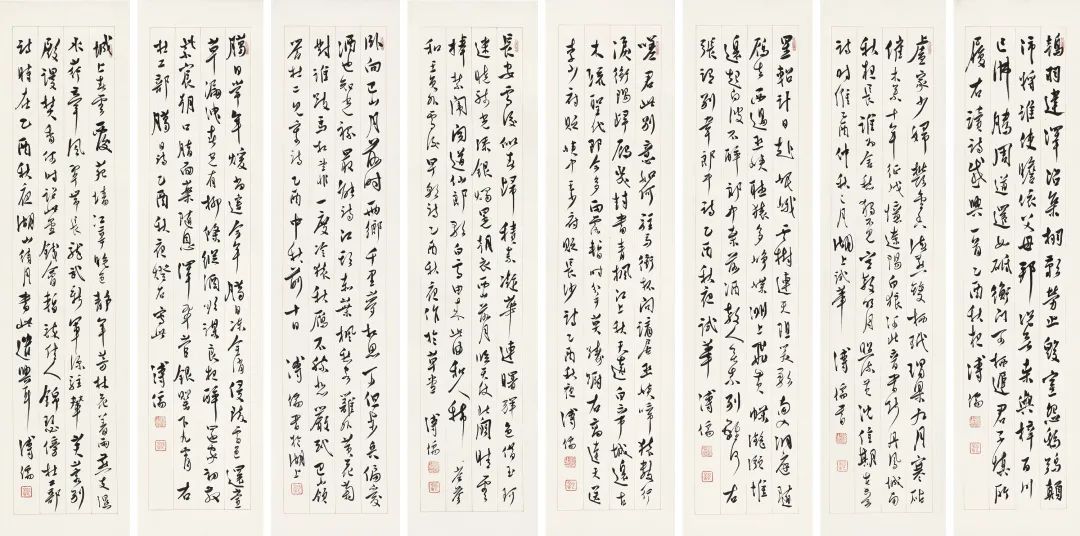 鴇羽違澤沼集栩影勞止毀室怨鴟鴞顛
沛將誰使瞻依父母邦桑與梓百川
已沸騰周道還如砥衡門可栖遲君子慎所
履右讀詩感興一首乙酉秋起溥儒
盧家少婦鬱金堂海燕雙栖玳瑁梁九月寒砧
催木葉十年征戍憶遼陽白狼河北音書斷丹鳳城南
秋夜長誰為含愁獨不見更教明月照流黃沈佺期古意
詩時維乙酉仲秋之月湖上試筆溥儒書
星軺計日赴岷峨雲樹連天阻笑歌南入洞庭隨
雁去西過巫峽聽猿多崢嶸洲上飛黃蝶灩澦堆
邊起白波不醉郎中桑落酒教人無奈別離何右
張謂別韋郎中詩乙酉秋夜試筆溥儒
嗟君此別意如何駐馬銜杯問謫居巫峽啼猿數行
淚衡陽歸雁幾封書青楓江上秋天遠白帝城邊古
木疏聖代即今多雨露暫時分手莫躊躇右高達夫送
李少府貶峽中王少府貶長沙詩乙酉秋夜溥儒
長安雪後似春歸積素凝華連曙暉色借玉珂
迷曉騎光添銀燭晃朝衣西山落月臨天仗北闕晴雲
捧禁闈聞道仙郎歌白雪由來此曲和人稀岑參
和王員外雪後早朝詩乙酉秋夜作於草堂溥儒
臥向巴山落月時兩鄉千里夢相思可但步兵偏愛
酒也知光祿最能詩江頭赤葉楓愁客籬外黃花菊
對誰跂馬望君非一度冷猿秋雁不勝悲嚴武巴嶺
答杜二見憶詩乙酉中秋前十日溥儒書於湖上
臘日常年暖尚遙今年臘日凍全消侵陵雪色還萱
草漏洩春光有柳條縱酒欲謀良夜醉還家初散
紫宸朝口脂面藥隨恩澤翠管銀罌下九霄右
杜工部臘日詩乙酉秋夜燈右寫此溥儒
城上春雲覆苑牆江亭晚色靜年芳林花著雨燕支濕
水荇牽風翠帶長龍武新軍深駐輦芙蓉別
殿謾焚香何時詔此金錢會暫醉佳人錦瑟傍杜工部
詩時在乙酉秋夜湖山月書此遣興耳溥儒